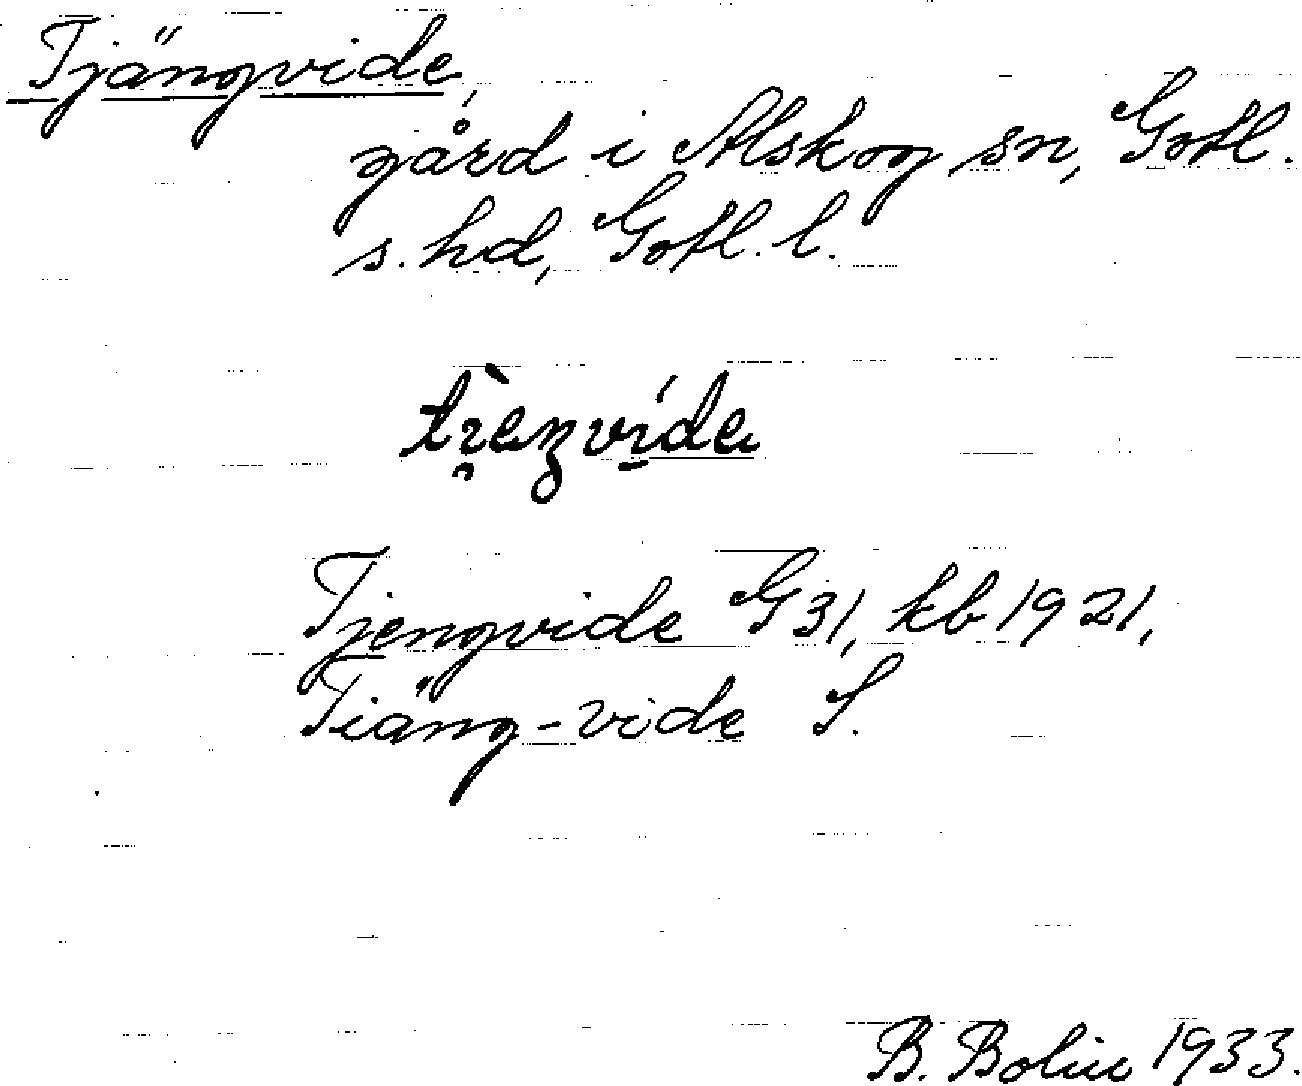 Tjängvide,
gård i Alskog sn, Gotl.
s. hd, Gotl. l.
Tjengvide G31, kb 1921,
Tiäng-vide S.
B. Bolin 1933.